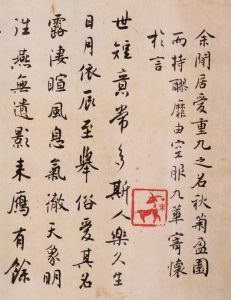 余閒居愛重九之名秋菊盈園
而持醪靡由空服九華寄懷
於言
世短意常多斯人樂久生
日月依辰至舉俗愛其名
露淒暄風息氣澈天象明
往燕無遺影来鴈有餘